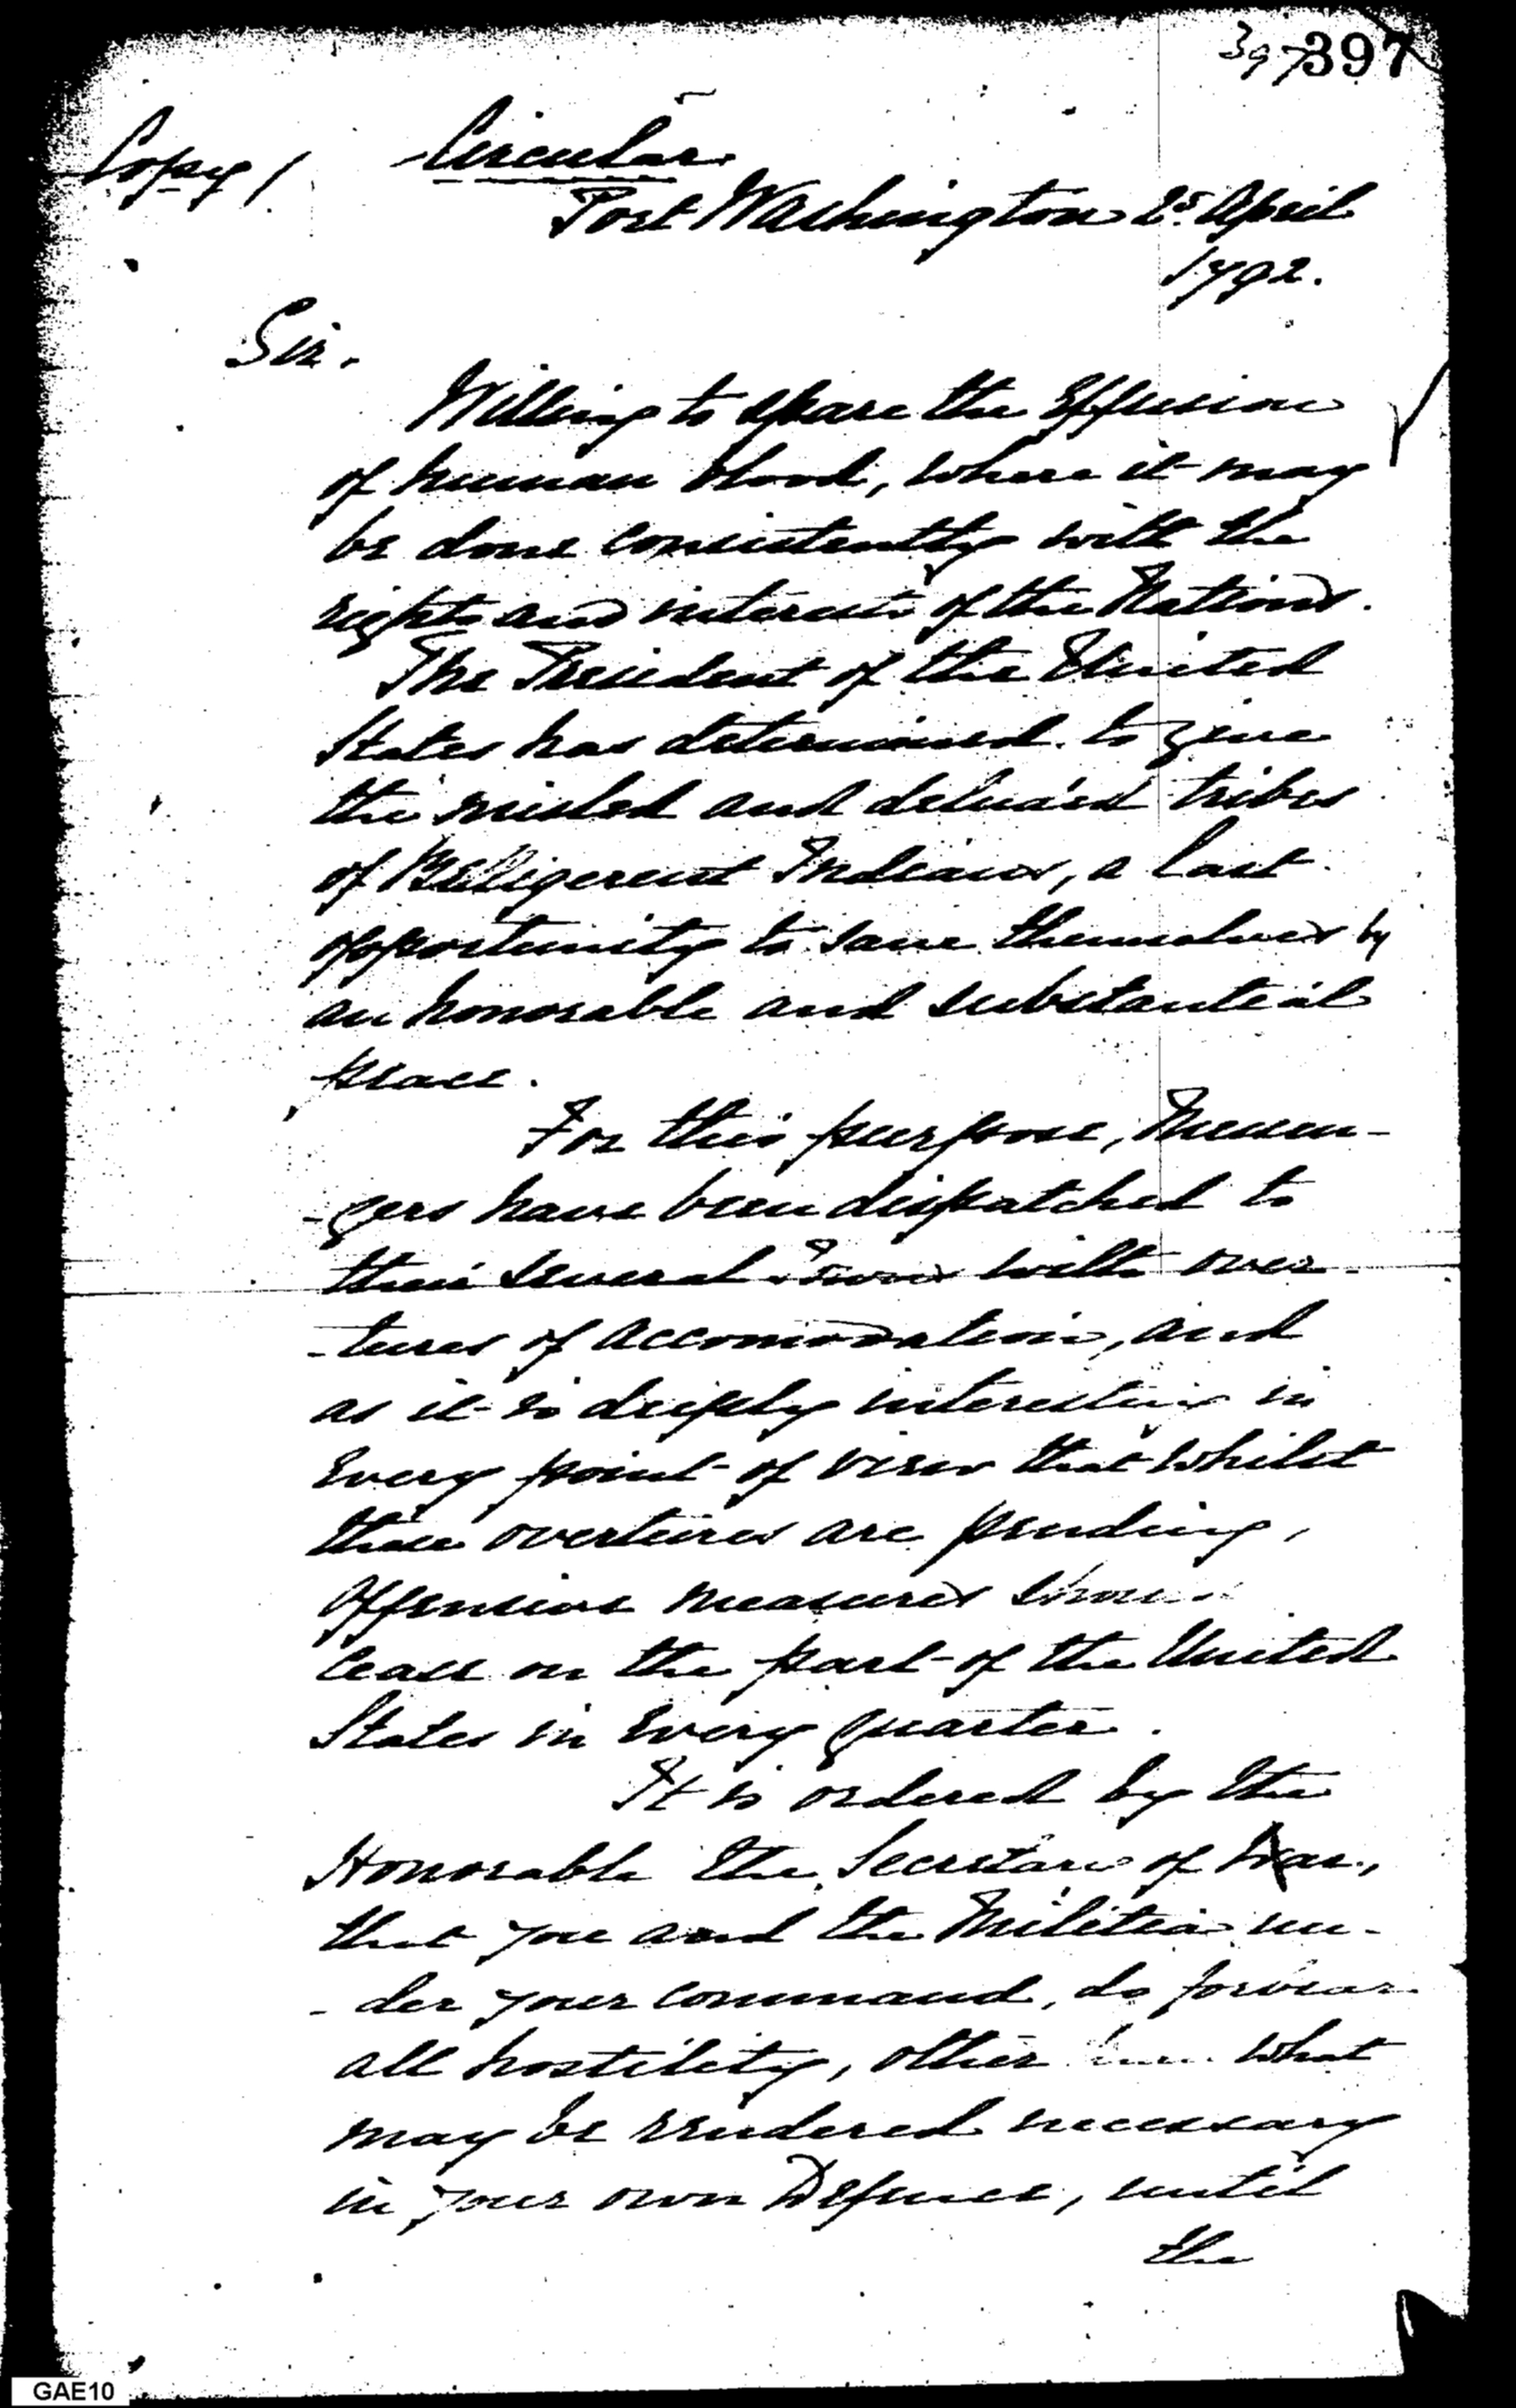 397 397
Copy / Circular
Fort Washington 25 April
1792.
Sir.
Willing to spare the Effusion
of human blood, where it may
be done consistently with the
rights and interests of the Nations.
The President of the United
States has determined to give
the misled and deluded tribes
of Belligerent Indians, a last
opportunity to save themselves by
an honorable and substantial
peace.
For this purpose, Messen-
-gers have been dispatched to
their several Towns with over-
-tures of accomodation, and
as it is deeply interesting in
every point of view that whilst
these overtures are pending,
offensive measures should
cease on the part of the United
States in every quarter.
It is ordered by the
Honorable the Secretary of War,
that you and the Militia un-
-der your command, do forbear
all hostility, other than what
may be rendered necessary
in your own Defence, until
the
GAE10